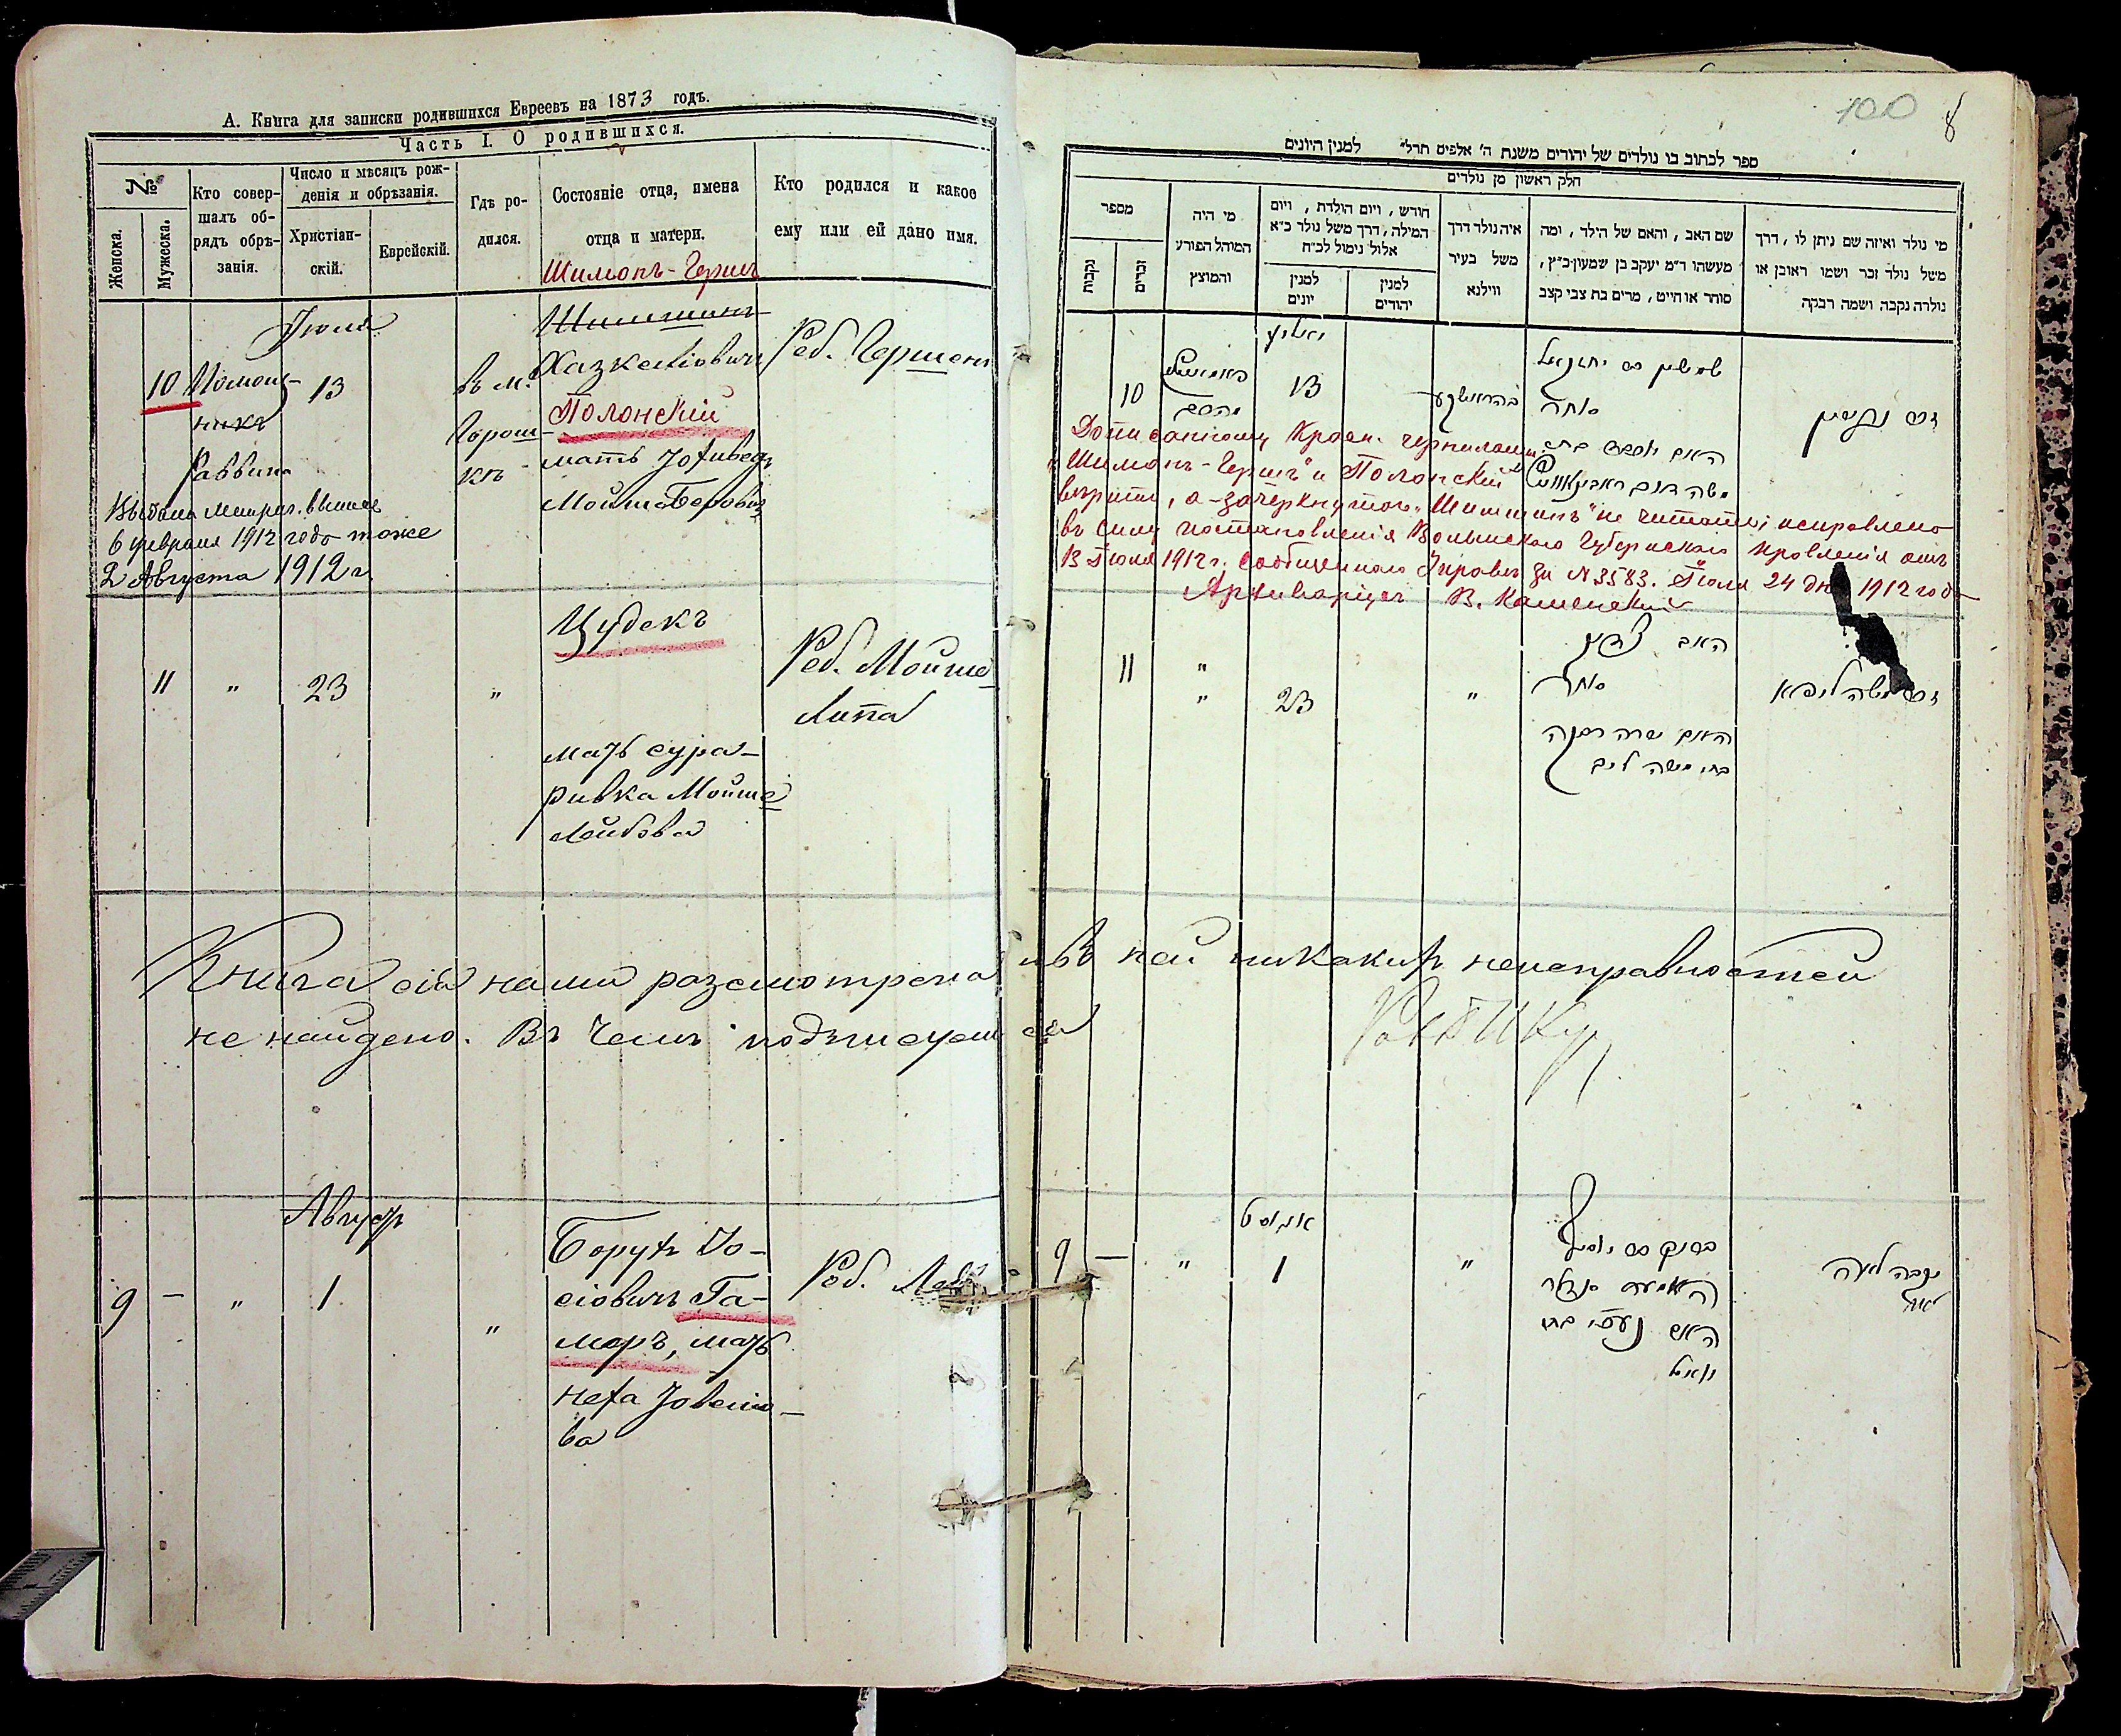 А. Книга для записки родившихся Евреевъ на 1873 годъ.
Часть I. О родившихся.
№
Женска.
Мужеска.
Кто совер-
шалъ об-
рядъ обрѣ-
занія.
Число и мѣсяцъ рож-
денія и обрѣзанія.
Христіан-
скій.
Еврейскій.
Гдѣ ро-
дился.
Состояніе отца, имена
отца и матери.
Кто родился и какое
ему или ей дано имя.
Шимонъ-Гершъ
Іюля
10
Помощ-
никъ
Раввина
13
въ м.
Горош-
кѣ
Шимшинъ
Хазкеліовичъ
Полонскій
мать
Мошко Беровна
Реб. Гершенъ
6 февраля 1912 года тоже
2 Августа 1912 г.
11 " 23 "
Цудекъ
мать сура-
ривка Мойше
Лейбова
Реб. Мойше
Липа
Книга сія нами разсмотрена
не найдено. Въ чемъ подписуем
Август
9 — " 1 "
Борухъ Іо-
сіовичъ Га-
меръ, мать
Неха
ва
Реб.
100
8
ספר לכתוב בו נולדים של יהודים משנת ה' אלפים תרל" למנין היונים
חלק ראשון מן נולדים
מספר
נקבות
זכרים
מי היה
המוהל הפורע
והמוצץ
חודש , ויום הולדת , ויום
המילה , דרך משל נולד כ"א
אלול נימול לכ"ח
למנין
יונים
למנין
יהודים
איה נולד דרך
משל בעיר
ווילנא
שם האב , והאם של הילד , ומה
מעשהו ר"מ יעקב בן שמעון כ"ץ ,
סוחר או חייט , מרים בת צבי קצב
מי נולד ואיזה שם ניתן לו , דרך
משל נולד זכר ושמו ראובן או
נולדה נקבה ושמה רבקה
10
13
סוחר
Дописанному красн. чернилами
„Шимонъ-Гершъ" и „Полонскій"
вѣрить, а зачеркнутое „Шимшинъ" не читать; исправлено
въ силу постановленія Волынскаго Губернскаго Правленія отъ
13 Іюля 1912 г. сообщеннаго Управѣ за № 3583. Іюля 24 дня 1912 года
Архиваріусъ В. Каменскій
11 " " 23 "
האב
סוחר
האם שרה רבקה
בת משה ליב
זכר משה ליפא
въ ней никакихъ неисправностей
ся
אוגוסט
9 — " 1 "
ברוך בן יוסף
האם
נקבה לאה